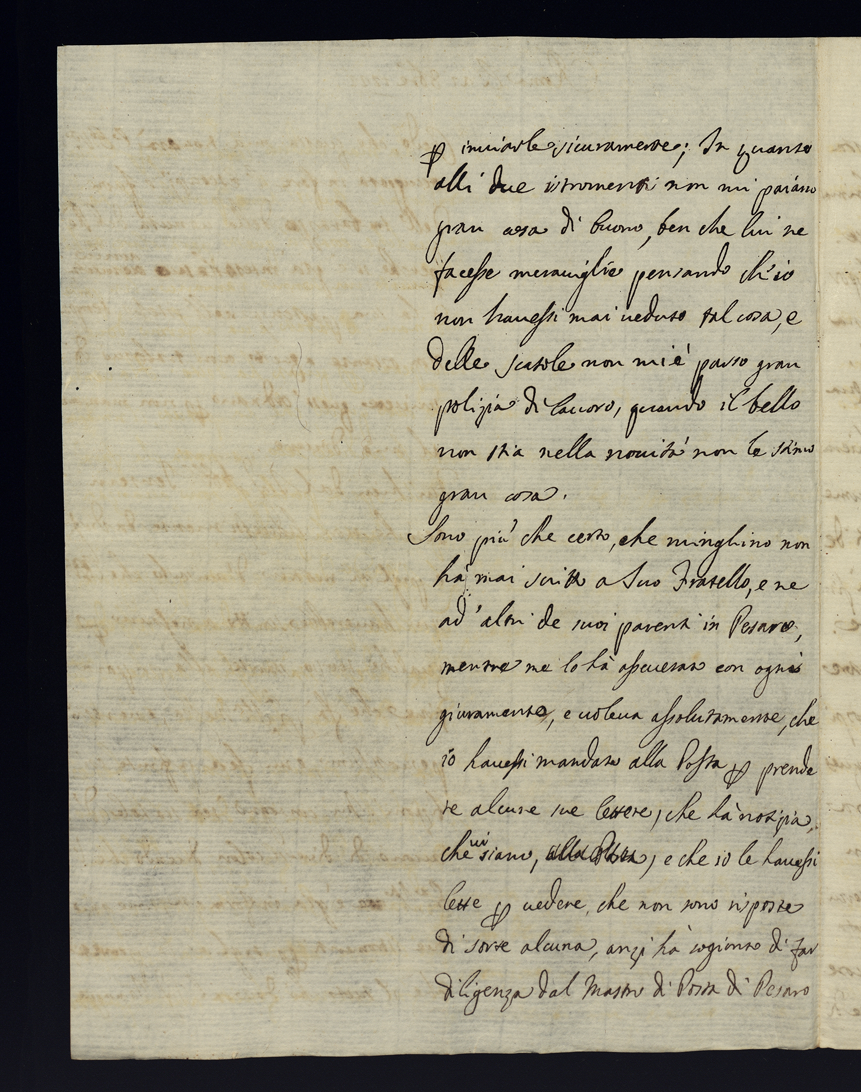 ꝑ inviarle sicuramente; In quanto
alli due istromenti non mi paiano
gran cosa di buono, ben che lui ne
facesse meraviglie pensando ch'io
non havessi mai veduto tal cosa, e
delle scatole non mi è parso gran
polizia di lavoro, quando il bello
non stia nella novità non le stimo
gran cosa.
Sono più che certo, che minghino non
hà mai scritto a Suo Fratello, e ne
ad'altri de suoi parenti in Pesaro,
mentre me lo hà asseverato con ogni
giuramento, e voleva assolutamente, che
io havessi mandato alla Posta ꝑ prende
re alcune sue lettere, che hà notizia,
che vi siano, alla Posta, e che io le havessi
lette ꝑ vedere, che non sono risposte
di sorte alcuna, anzi hà sogionto di far
diligenza dal Mastro di Posta di Pesaro